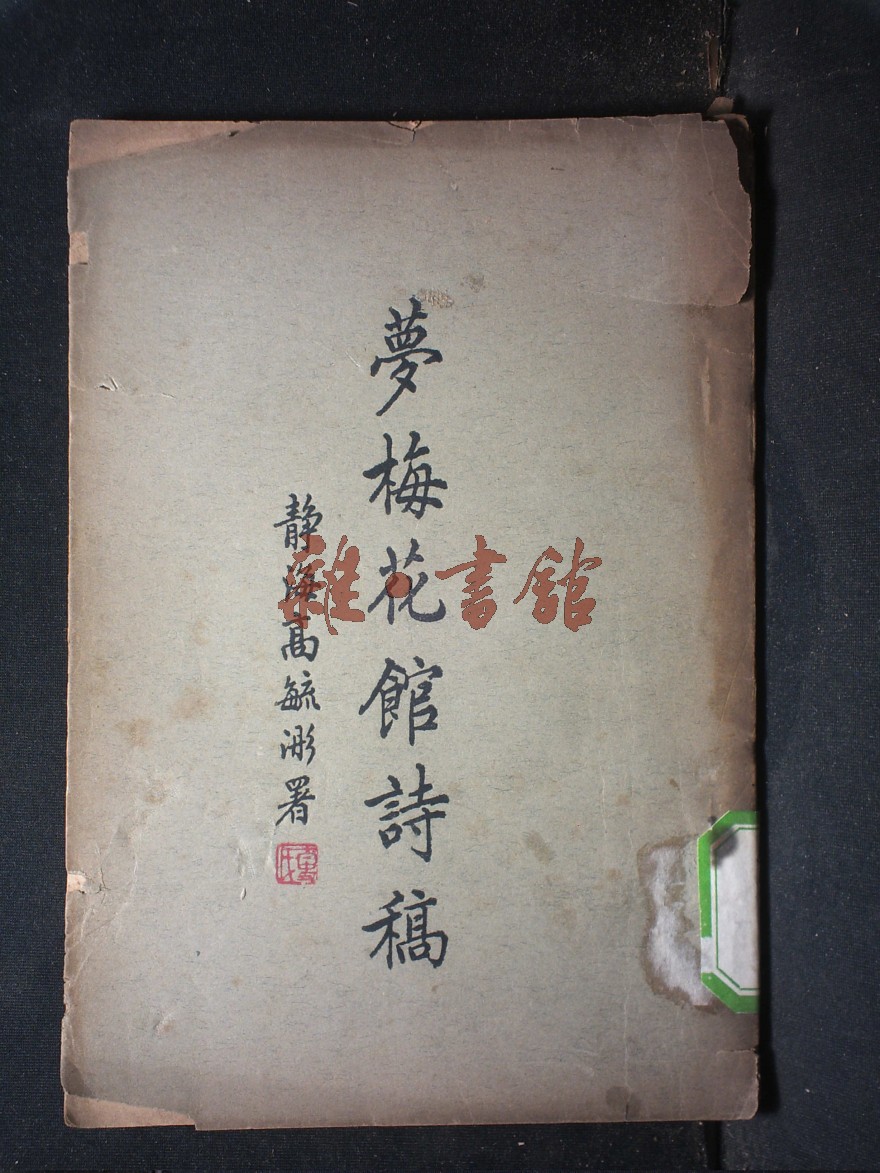 夢梅花館詩稿
静海高毓浵署
雜·書館